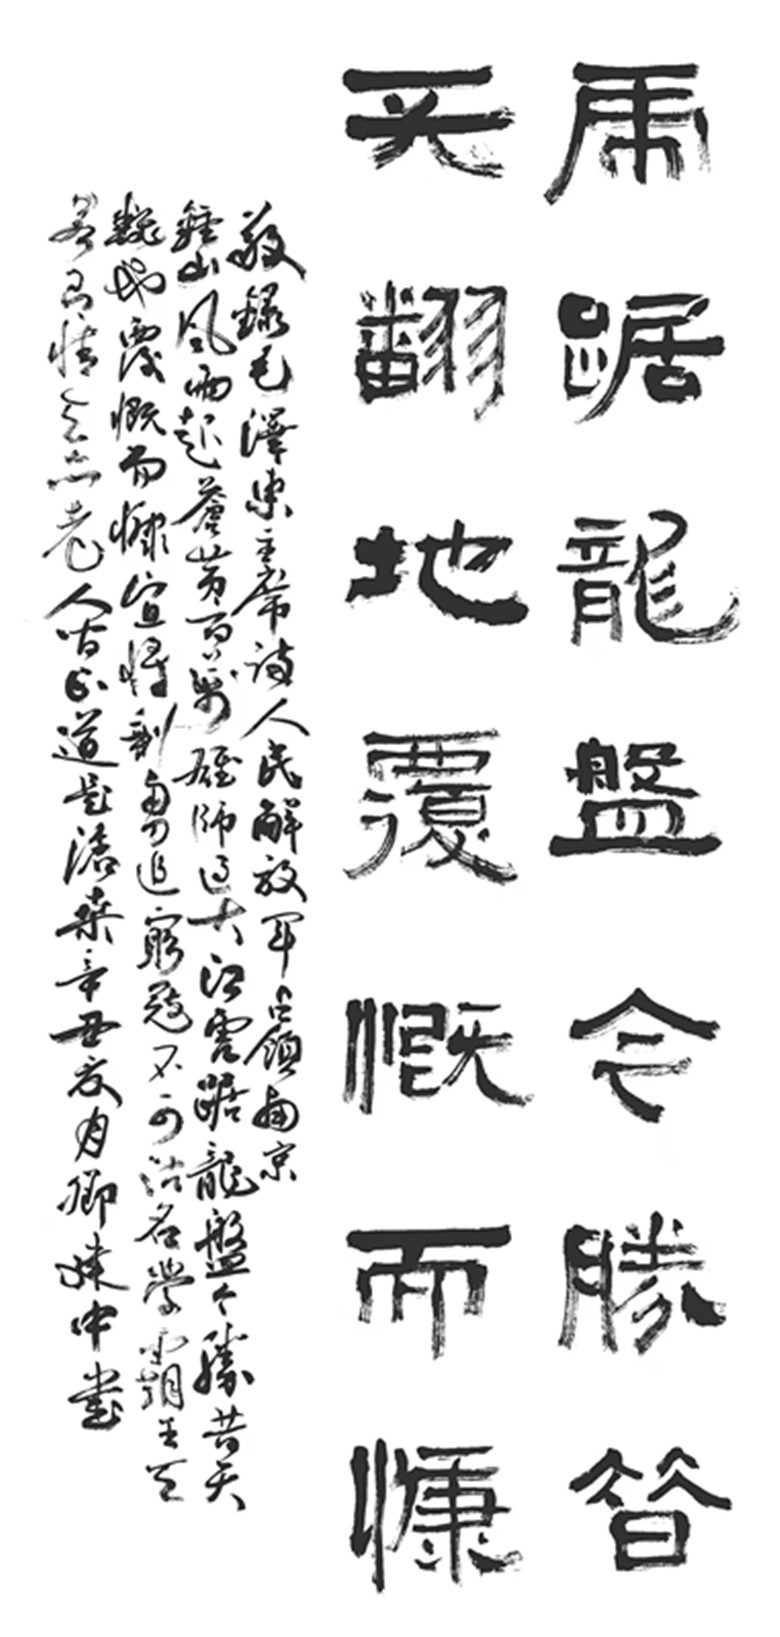 虎踞龍盤今勝昔
天翻地覆慨而慷
敬錄毛澤東主席詩人民解放軍占領南京
鍾山風雨起蒼黃百萬雄師過大江虎踞龍盤今勝昔天
翻地覆慨而慷宜將剩勇追窮寇不可沽名學霸王天
若有情天亦老人間正道是滄桑辛丑月中書